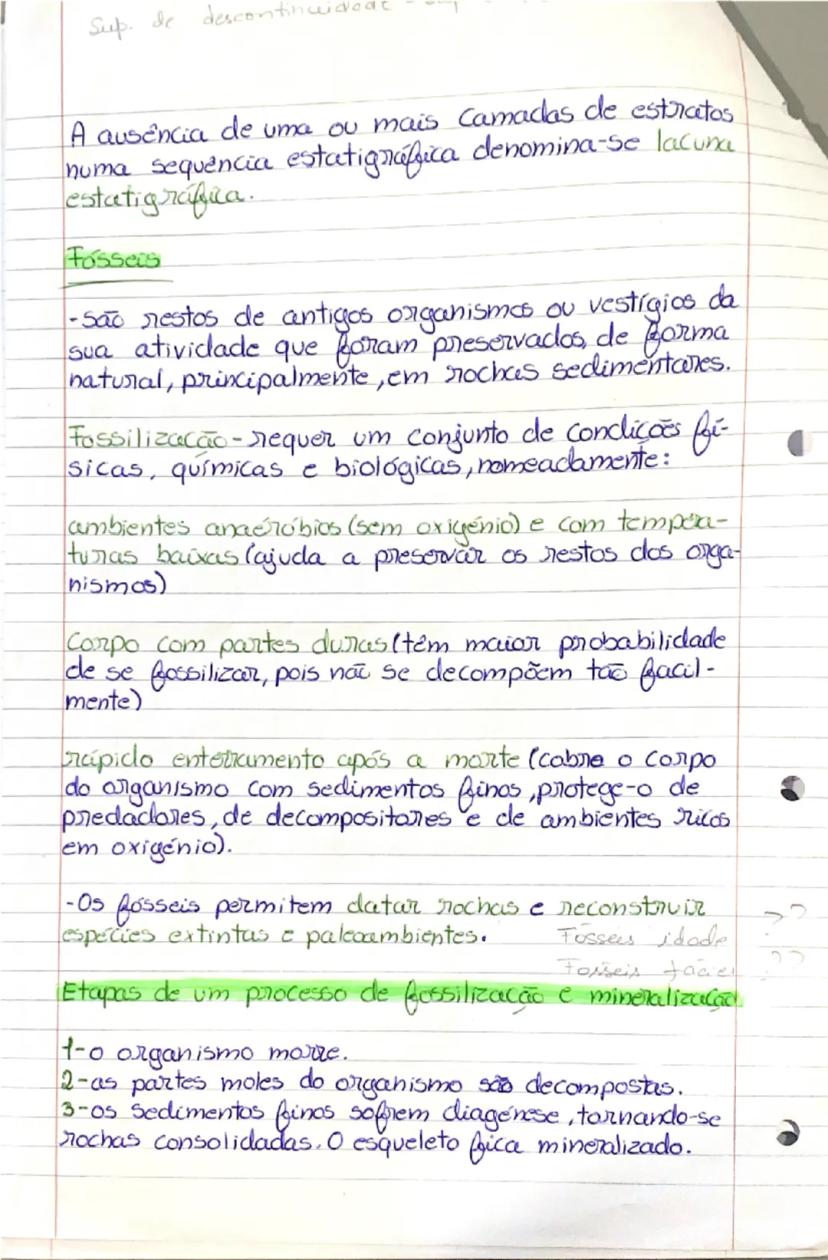 Sup. de descontinuidade -
A ausência de uma ou mais camadas de estratos
numa sequência estatigráfica denomina-se lacuna
estatigráfica.
Fósseis
-são restos de antigos organismos ou vestígios da
sua atividade que foram preservados, de forma
natural, principalmente, em rochas sedimentares.
Fossilização-requer um conjunto de condições fí-
sicas, químicas e biológicas, nomeadamente:
ambientes anaeróbios (sem oxigénio) e com tempera-
turas baixas (ajuda a preservar os restos dos orga-
nismos)
Corpo com partes duras (têm maior probabilidade
de se fossilizar, pois não se decompõem tão facil-
mente)
rápido enterramento após a morte (cobre o corpo
do organismo com sedimentos finos, protege-o de
predadores, de decompositores e de ambientes ricos
em oxigénio).
-Os fósseis permitem datar rochas e reconstruir
espécies extintas e paleoambientes. Fósseis idade ??
Fósseis fácies ??
Etapas de um processo de fossilização e mineralização
1-o organismo morre.
2-as partes moles do organismo são decompostas.
3-os sedimentos finos sofrem diagénese, tornando-se
rochas consolidadas. O esqueleto fica mineralizado.